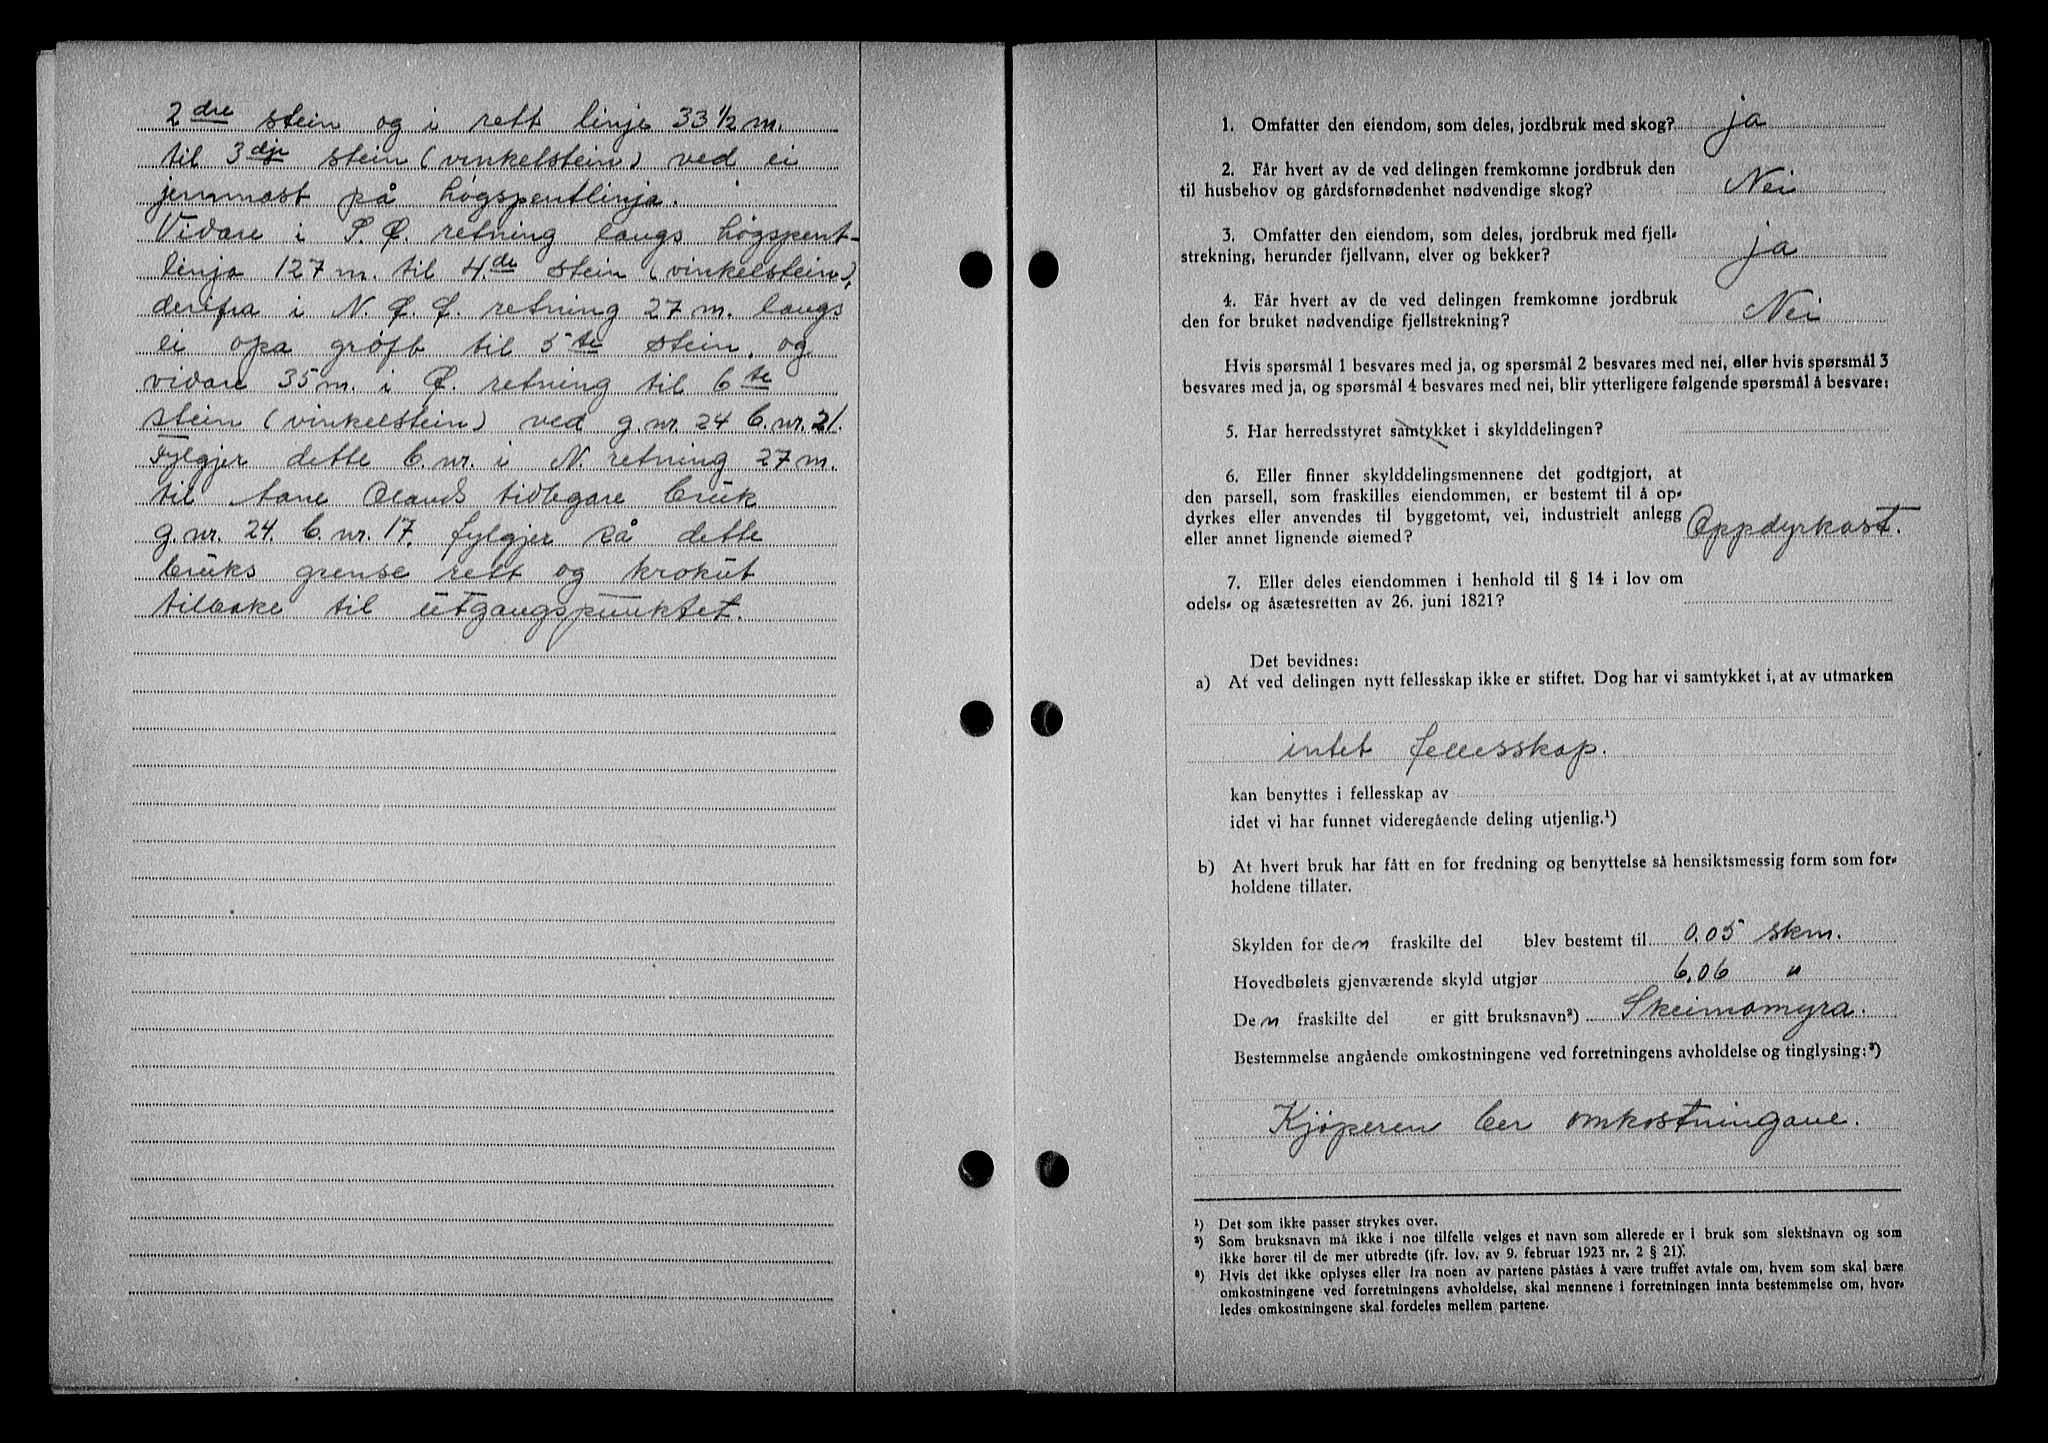 2dre stein og i rett linje 33 1/2 m.
til 3dje stein (vinkelstein) ved ei
jernmast på høgspentlinja.
Vidare i S.Ø. retning langs høgspent-
linja 127 m. til 4.de stein (vinkelstein),
derifra i N.Ø.Ø. retning 27 m. langs
ei opa grøft til 5te stein, og
vidare 35 m. i Ø. retning til 6te
stein (vinkelstein) ved g.nr. 24 b.nr. 21.
Fylgjer dette b.nr. i N. retning 27 m.
til Lane Ølands tidlegare bruk
g.nr. 24. b.nr. 17, fylgjer så dette
bruks grense rett og krokut
tilbake til utgangspunktet.
1. Omfatter den eiendom, som deles, jordbruk med skog? ja
2. Får hvert av de ved delingen fremkomne jordbruk den
til husbehov og gårdsfornødenhet nødvendige skog? Nei
3. Omfatter den eiendom, som deles, jordbruk med fjell-
strekning, herunder fjellvann, elver og bekker? ja
4. Får hvert av de ved delingen fremkomne jordbruk
den for bruket nødvendige fjellstrekning? Nei
Hvis spørsmål 1 besvares med ja, og spørsmål 2 besvares med nei, eller hvis spørsmål 3
besvares med ja, og spørsmål 4 besvares med nei, blir ytterligere følgende spørsmål å besvare:
5. Har herredsstyret samtykket i skylddelingen?
6. Eller finner skylddelingsmennene det godtgjort, at
den parsell, som fraskilles eiendommen, er bestemt til å op-
dyrkes eller anvendes til byggetomt, vei, industrielt anlegg
eller annet lignende øiemed? Oppdyrkast.
7. Eller deles eiendommen i henhold til § 14 i lov om
odels- og åsætesretten av 26. juni 1821?
Det bevidnes:
a) At ved delingen nytt fellesskap ikke er stiftet. Dog har vi samtykket i, at av utmarken
intet fellesskap.
kan benyttes i fellesskap av
idet vi har funnet videregående deling utjenlig.¹)
b) At hvert bruk har fått en for fredning og benyttelse så hensiktsmessig form som for-
holdene tillater.
Skylden for den fraskilte del blev bestemt til 0.05 skm.
Hovedbølets gjenværende skyld utgjør 6.06 "
Den fraskilte del er gitt bruksnavn²) Skeimomyra.
Bestemmelse angående omkostningene ved forretningens avholdelse og tinglysing:³)
Kjøperen ber omkostningane.
¹) Det som ikke passer strykes over.
²) Som bruksnavn må ikke i noe tilfelle velges et navn som allerede er i bruk som slektsnavn og som
ikke hører til de mer utbredte (jfr. lov. av 9. februar 1923 nr. 2 § 21).
³) Hvis det ikke oplyses eller fra noen av partene påståes å være truffet avtale om, hvem som skal bære
omkostningene ved forretningens avholdelse, skal mennene i forretningen innta bestemmelse om, hvor-
ledes omkostningene skal fordeles mellem partene.